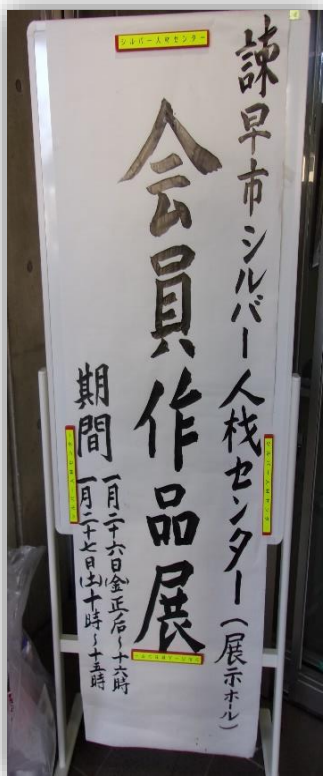 シルバー人材センター
諫早市シルバー人材センター(展示ホール)
会員作品展
期間
一月二十六日(金)正后~十六時
一月二十七日(土)十時~十五時